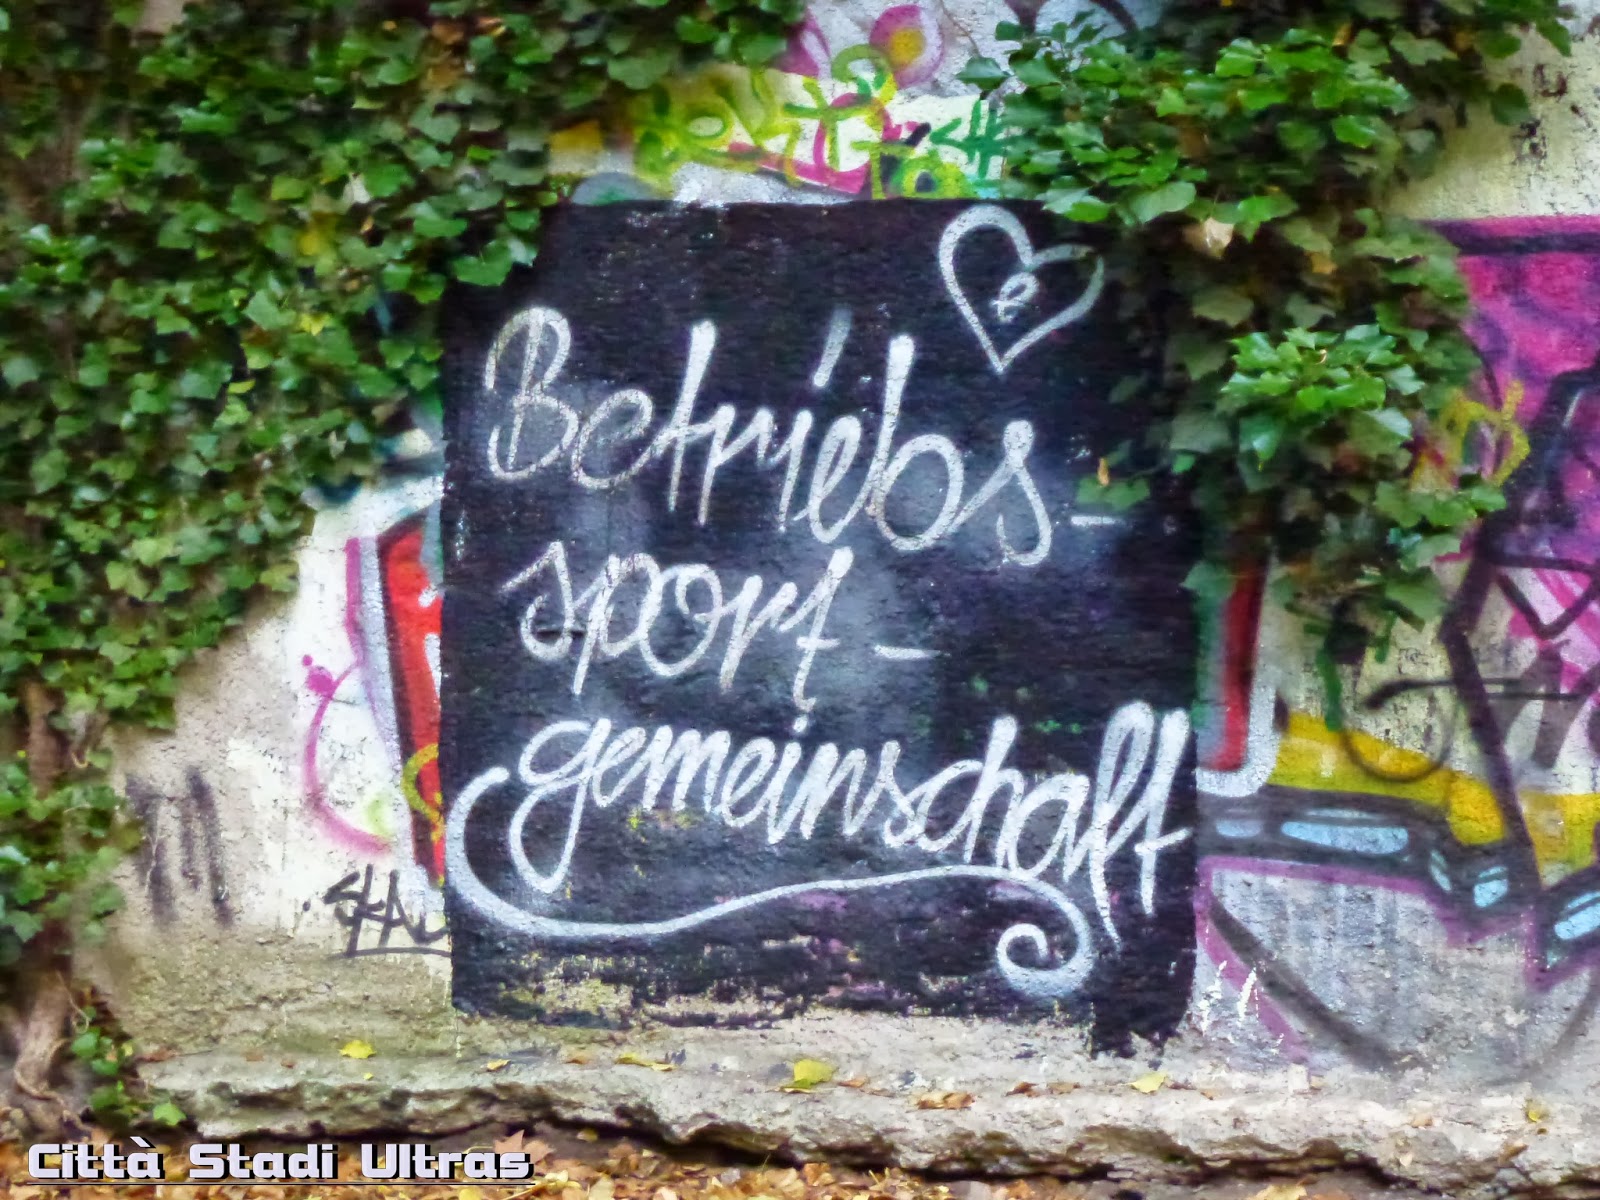 e
Betriebs-
sport-
gemeinschaft
SKA
Città Stadi Ultras